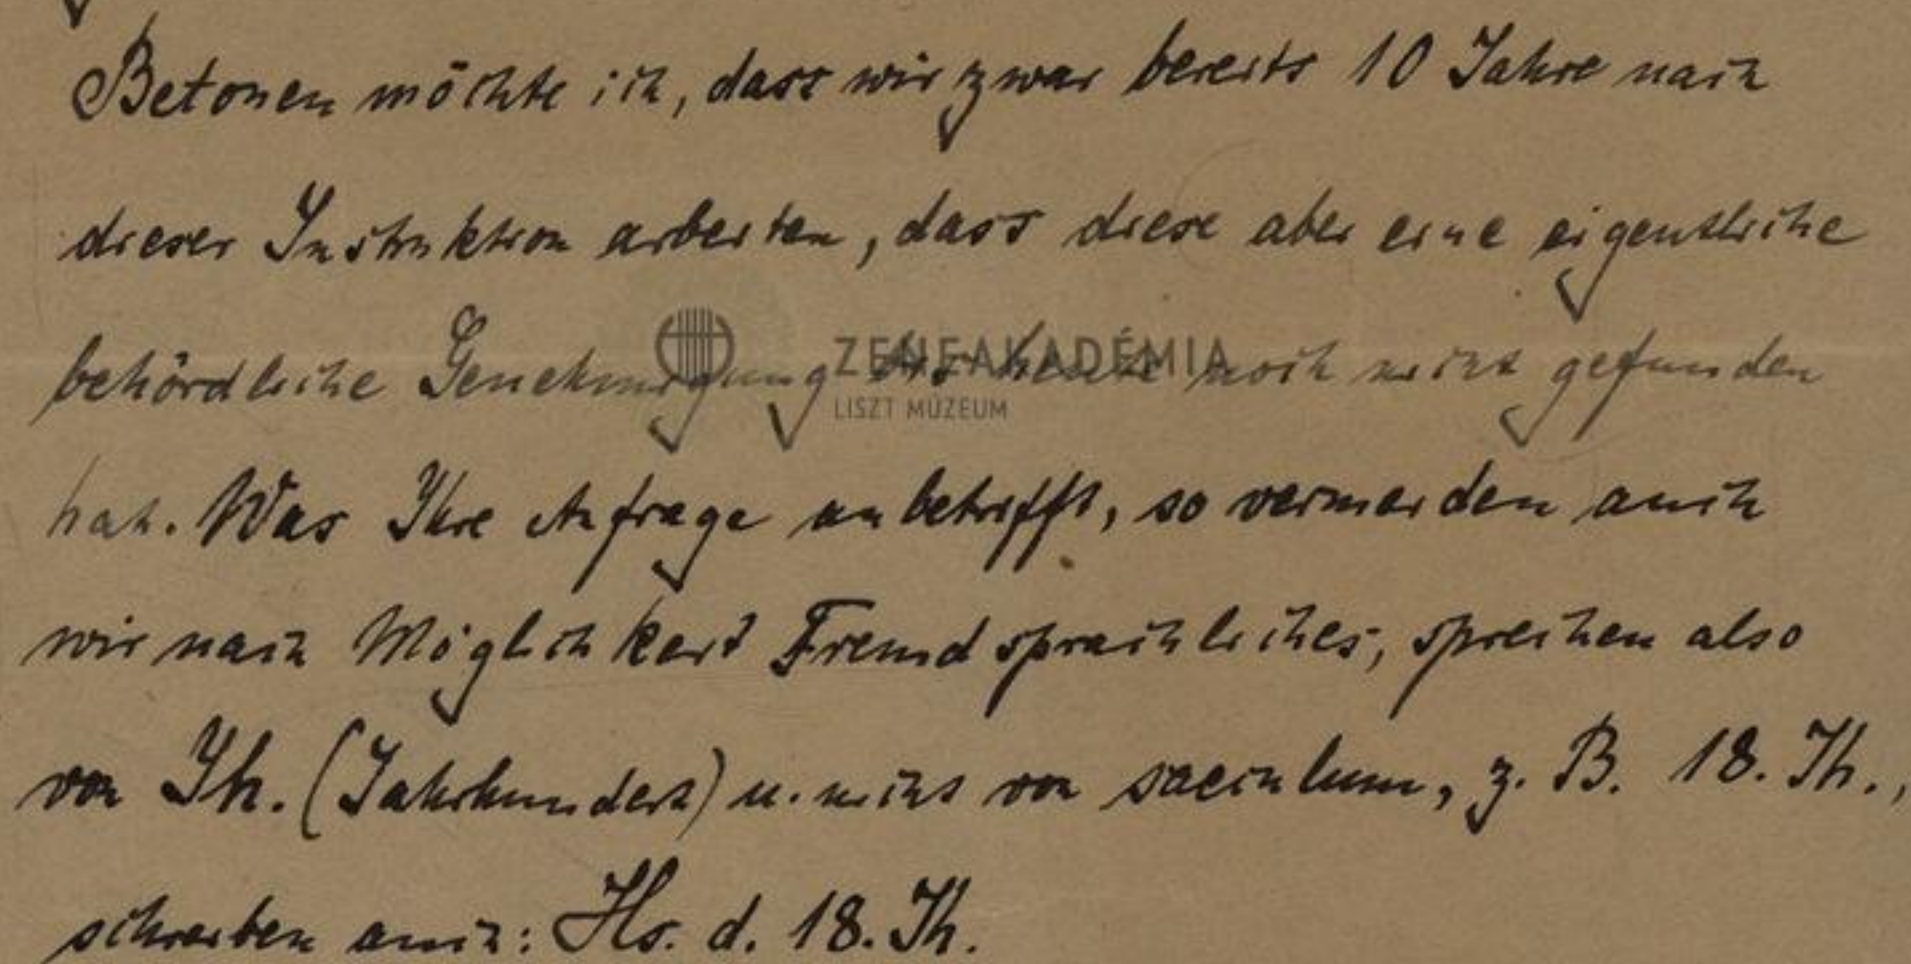 Betonen möchte ich, dass wir zwar bereits 10 Jahre nach
dieser Instruktion arbeiten, dass diese aber eine eigentliche
behördliche Genehmigung bis heute noch nicht gefunden
ZENEAKADÉMIA
LISZT MÚZEUM
hat. Was Ihre Anfrage anbetrifft, so vermeiden auch
wir nach Möglichkeit Fremdsprachliches, sprechen also
von Jh. (Jahrhundert) u. nicht von saeculum, z. B. 18. Jh.,
schreiben auch: Hs. d. 18. Jh.